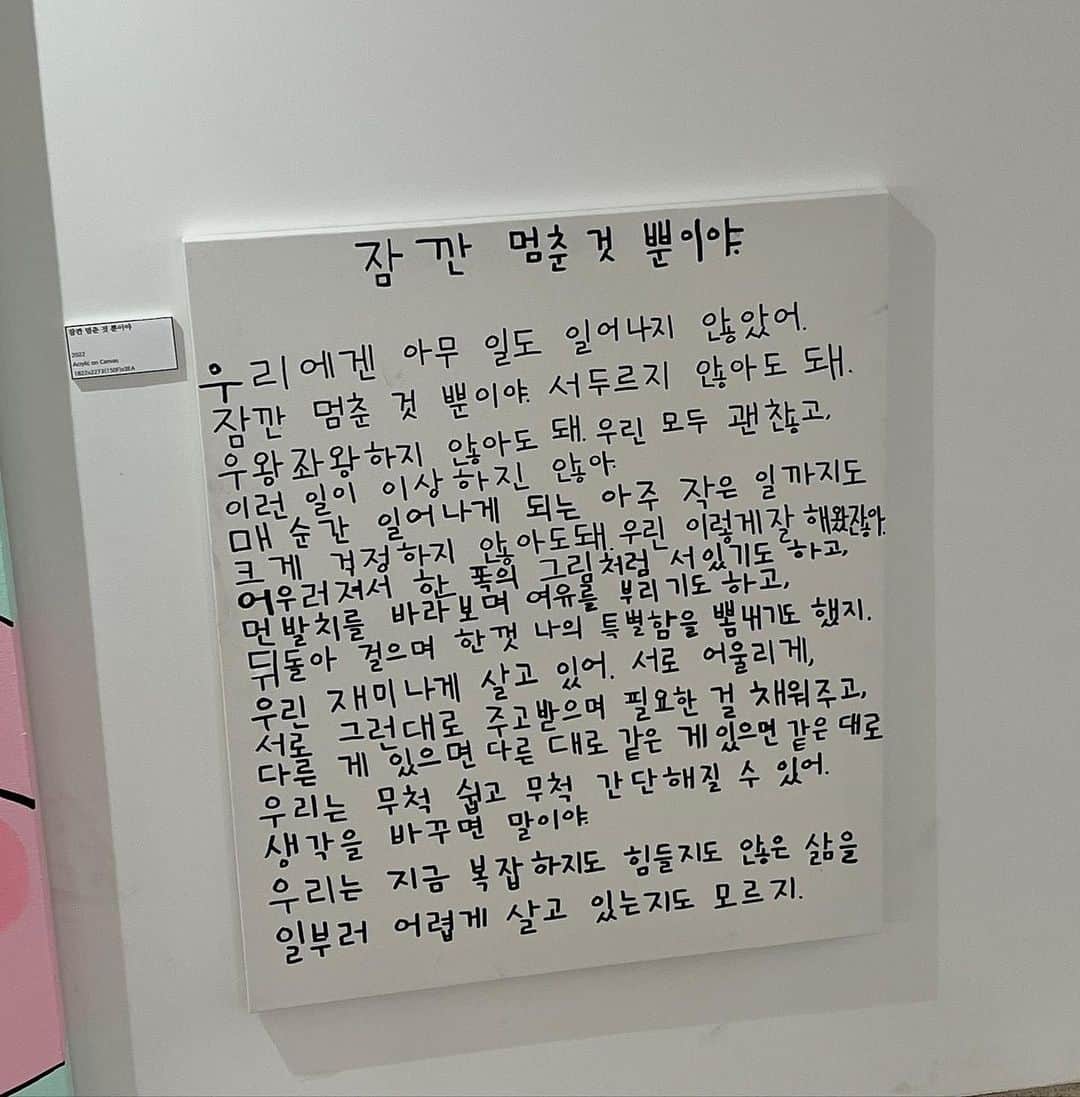 잠깐 멈춘 것 뿐이야
2022
Acrylic on Canvas
잠깐 멈춘것 뿐이야.
우리에겐 아무 일도 일어나지 않았어.
잠깐 멈춘 것 뿐이야. 서두르지 않아도 돼.
우왕좌왕하지 않아도 돼. 우린 모두 괜찮고,
이런 일이 이상하진 않아.
매 순간 일어나게 되는 아주 작은 일까지도
크게 걱정하지 않아도돼. 우린 이렇게잘 해왔잖아.
어우러져서 한 폭의 그림처럼 서있기도 하고,
먼발치를 바라보며 여유를 부리기도 하고,
뒤돌아 걸으며 한껏 나의 특별함을 뽐내기도 했지.
우린 재미나게 살고 있어. 서로 어울리게,
서로 그런대로 주고받으며 필요한 걸 채워주고,
다른 게 있으면 다른 대로 같은 게있으면 같은 대로
우리는 무척 쉽고 무척 간단해질 수 있어.
생각을 바꾸면 말이야
우리는 지금 복잡하지도 힘들지도 않은 삶을
일부러 어렵게 살고 있는지도 모르지.